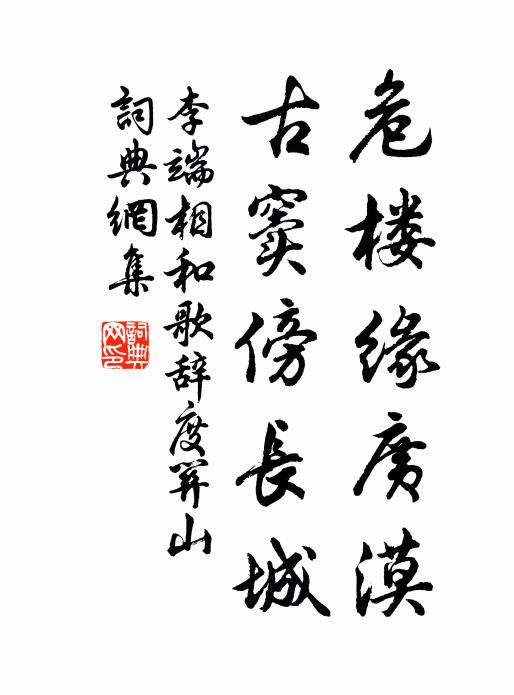 危楼缘廣漠
古窦傍長城
李端相和歌辞度関山
詞典網集
詞典網印